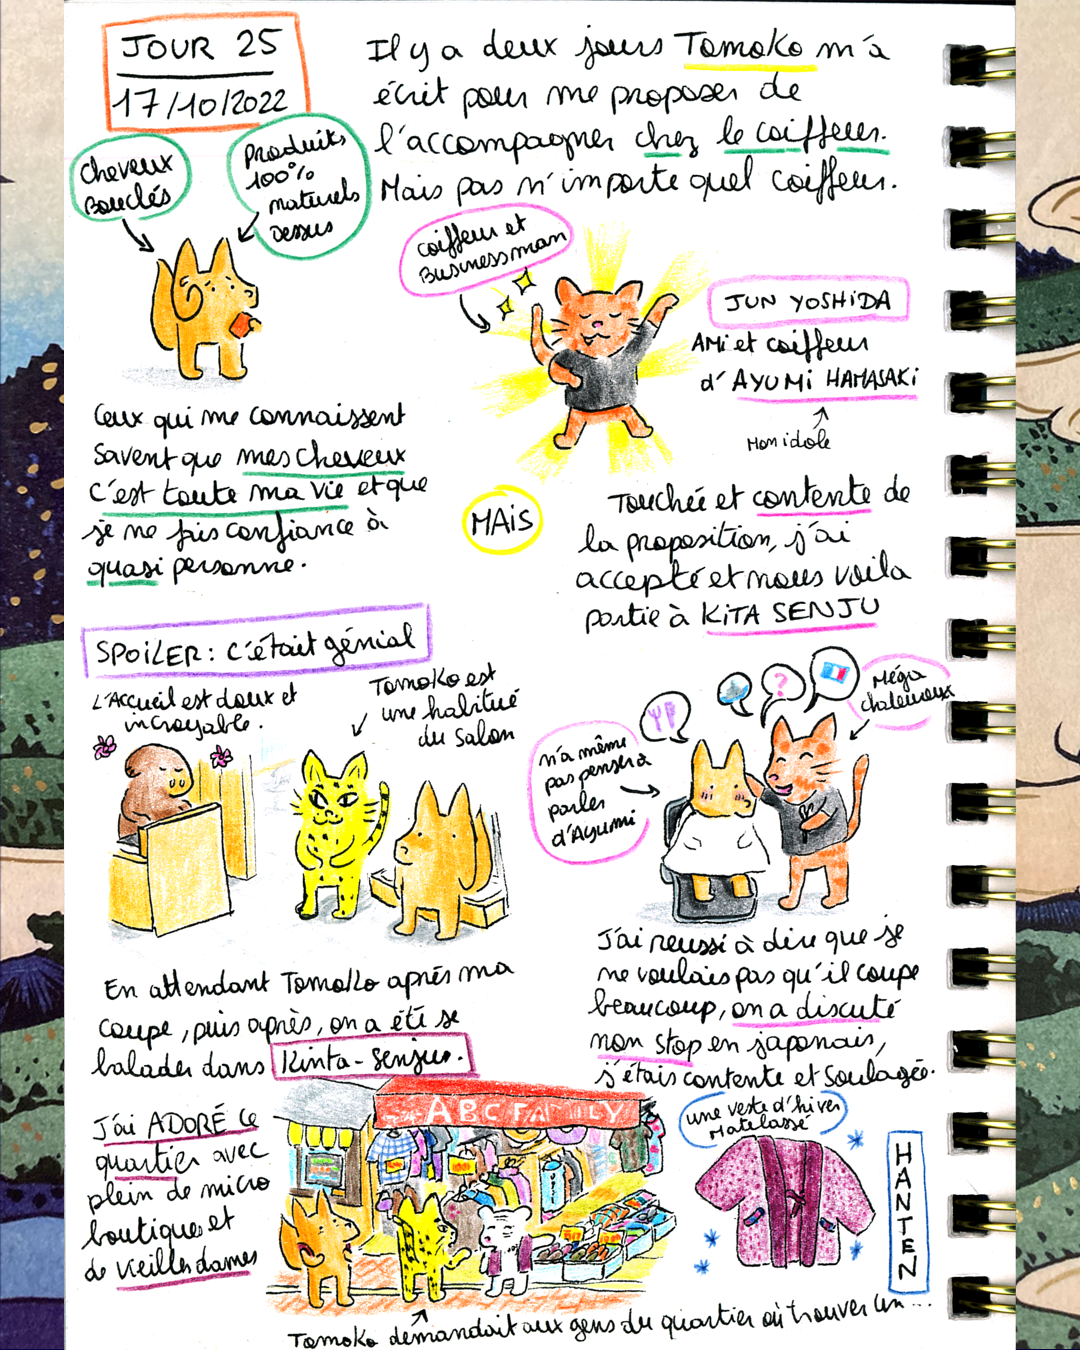 JOUR 25
17/10/2022
Il y a deux jours Tomoko m'a
écrit pour me proposer de
l'accompagner chez le coiffeur.
Mais pas n'importe quel coiffeur.
Cheveux
Bouclés
Produits
100%
naturels
Dessus
coiffeur et
Businessman
JUN YOSHIDA
AMi et coiffeur
d'AYUMI HAMASAKI
Mon idole
Ceux qui me connaissent
savent que mes cheveux
c'est toute ma vie et que
je ne fais confiance à
quasi personne.
MAIS
Touchée et contente de
la proposition, j'ai
accepté et nous voila
partie à KITA SENJU
SPOILER : c'était génial
L'Accueil est doux et
incroyable.
Tomoko est
une habitué
du salon
n'a même
pas penser à
parler
d'Ayumi
Méga
chaleureux
J'ai reussi à dire que je
ne voulais pas qu'il coupe
beaucoup, on a discuté
non stop en japonais,
j'étais contente et soulagée.
En attendant Tomoko après ma
coupe, puis après, on a été se
balader dans Kinta-Senjuu.
J'ai ADORÉ ce
quartier avec
plein de micro
boutiques et
de vieilles dames
ABC FAMILY
une veste d'hiver
Matelassé
HANTEN
Tomoko demandait aux gens du quartier où trouver un...